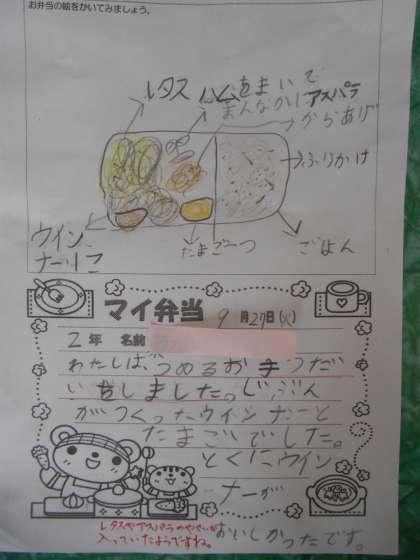 お弁当の絵をかいてみましょう。
レタス
ハムをまいで
まんなかにアスパラ
からあげ
ふりかけ
ウイン
ナー1こ
たまご一つ
ごはん
マイ弁当
9月27日(火)
2年 名前
わたしは、つめるお手つだ
いをしました。じぶん
がつくったウインナーと
たまごでした。
とくにウイン
ナーが
おいしかったです。
レタスやアスパラのやさいが
入っていたようですね。